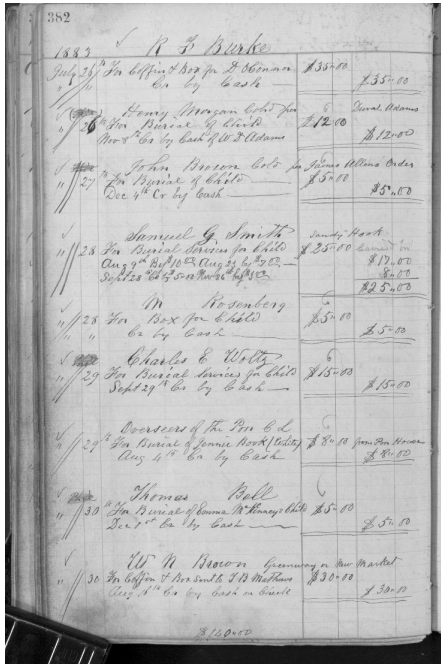 382
1883 R F Burke
July 26th For Coffin & Box for D. OConnor $35.00
" " Cr by Cash $35.00
Henry Morgan Cold per Duval Adams
" 26th For Burial of Child $12.00
Nov 8th Cr by Cash of W. D. Adams $12.00
John Brown Cold per James Allens Order
" 27 For Burial of Child $5.00
Dec 4th Cr by Cash $5.00
Samuel G. Smith Sandy Hook
" 28 For Burial Services for Child $25.00
Aug 9th By $10.00 Aug 23 by $7.00 $17.00
Sept 28th Cr by 5.00 Nov 26th by 8.00
$25.00
M Rosenberg
" 28 For Box for Child $5.00
" Cr by Cash $5.00
Charles E Woltz
" 29 For Burial Services for Child $15.00
Sept 29th Cr by Cash $15.00
Overseers of the Poor
" 29th For Burial of Jennie Rook $8.00 from Poor House
Aug 4th Cr by Cash $8.00
Thomas Bell
" 30th For Burial of Emma McKinneys Child $5.00
Dec 1st Cr by Cash $5.00
W N Brown Greenway or New Market
" 30 For Coffin & Box Sent to T B Mathews $30.00
Aug Cr by Cash or Check $30.00
$140.00